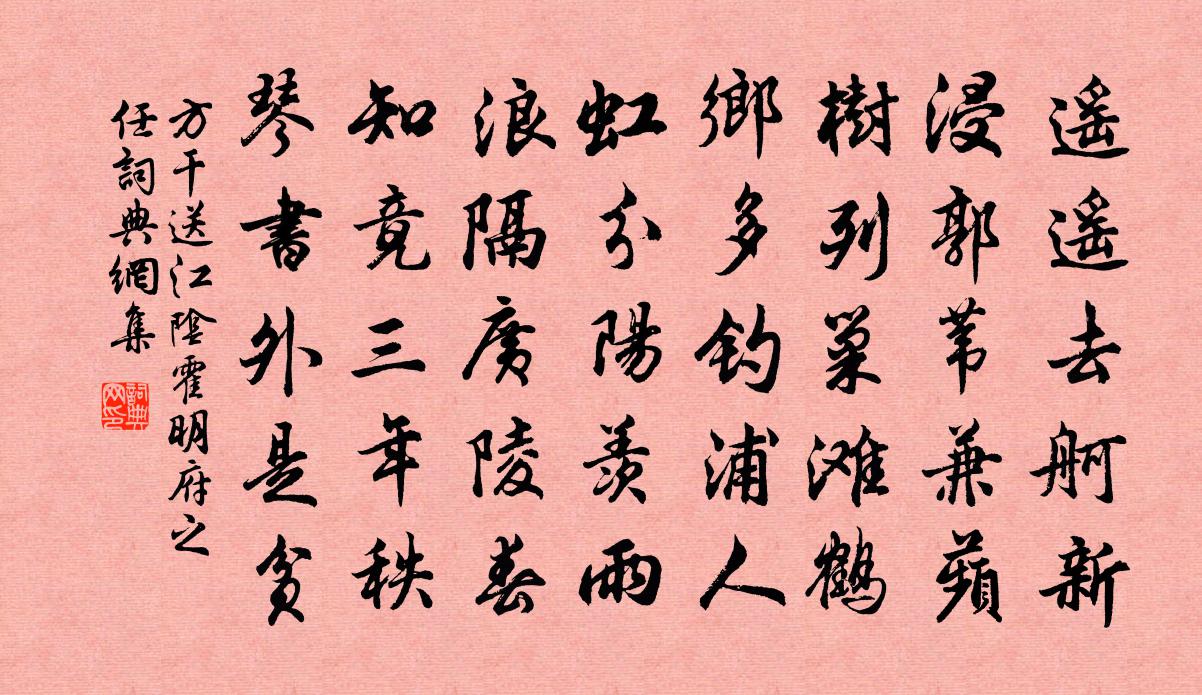 遥遥去舸新
浸郭苇兼蘋
樹列巢滩鶴
鄉多釣浦人
虹分陽羨雨
浪隔廣陵春
知竟三年秩
琴書外是貧
方干送江陰霍明府之
任詞典網集
詞典
网印